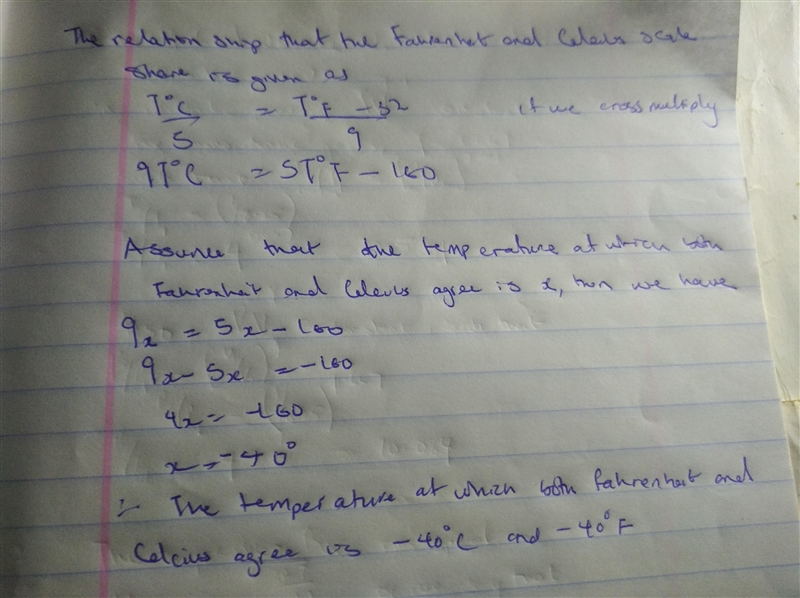 The relation ship that the Fahrenheit and Celcius scale
share is given as
T°C = T°F - 32 if we cross multiply
5 9
9T°C = 5T°F - 160
Assume that the temperature at which both
Fahrenheit and Celcius agree is x, then we have
9x = 5x - 160
9x - 5x = -160
4x = -160
x = -40°
∴ The temperature at which both fahrenheit and
Celcius agree is -40°C and -40°F